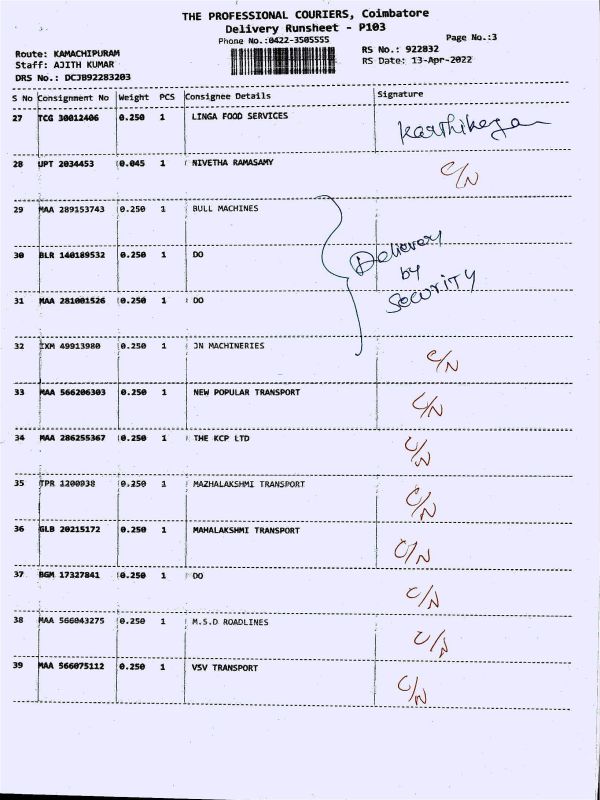 THE PROFESSIONAL COURIERS, Coimbatore
Delivery Runsheet - P103
Phone No.:0422-3505555
Page No.:3
Route: KAMACHIPURAM
RS No.: 922832
Staff: AJITH KUMAR
RS Date: 13-Apr-2022
DRS No.: DCJB92283203
S No Consignment No Weight PCS Consignee Details Signature
27 TCG 30012406 0.250 1 LINGA FOOD SERVICES Karthikeyan
28 UPT 2034453 0.045 1 NIVETHA RAMASAMY C/N
29 MAA 289153743 0.250 1 BULL MACHINES
30 BLR 140189532 0.250 1 DO Delievery
by
31 MAA 281001526 0.250 1 DO Security
32 IXM 49913980 0.250 1 JN MACHINERIES C/N
33 MAA 566206303 0.250 1 NEW POPULAR TRANSPORT C/N
34 MAA 286255367 0.250 1 THE KCP LTD C/N
35 TPR 1200938 0.250 1 MAZHALAKSHMI TRANSPORT C/N
36 GLB 20215172 0.250 1 MAHALAKSHMI TRANSPORT C/N
37 BGM 17327841 0.250 1 DO C/N
38 MAA 566043275 0.250 1 M.S.D ROADLINES C/N
39 MAA 566075112 0.250 1 VSV TRANSPORT C/N